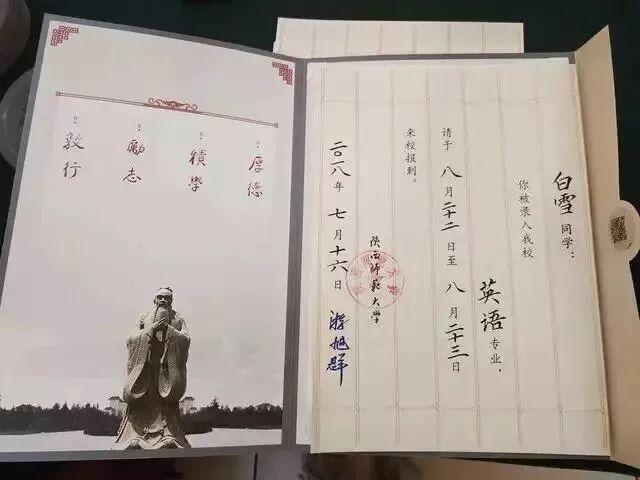 白雪同学：
你被录入我校
英语专业，
请于八月二十二日至八月二十三日
来校报到。
陕西师范大学
二〇一八年七月十六日 游旭群
厚德
積學
勵志
敦行